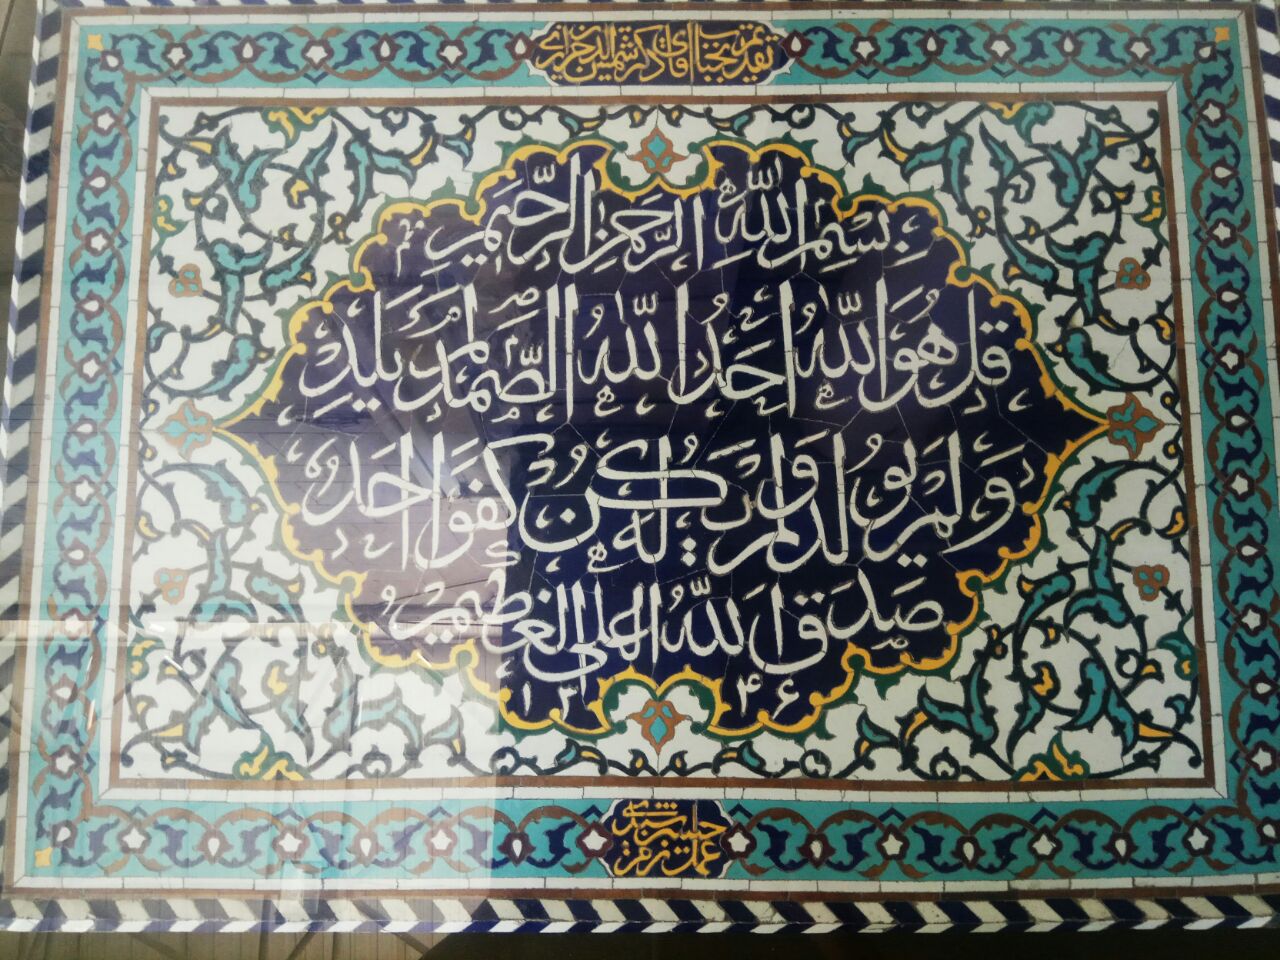 تقدیم بجناب آقای دکتر شمس الدین جزایری
بِسْمِ اللهِ الرَّحْمنِ الرَّحيمِ
قُلْ هُوَ اللهُ اَحَدٌ اللهُ الصَّمَدُ لَمْ يَلِدْ
وَلَمْ يُولَدْ وَلَمْ يَكُنْ لَهُ كُفُوًا اَحَدٌ
صَدَقَ اللهُ العلي العَظيمُ
۱۳۴۶
عمل